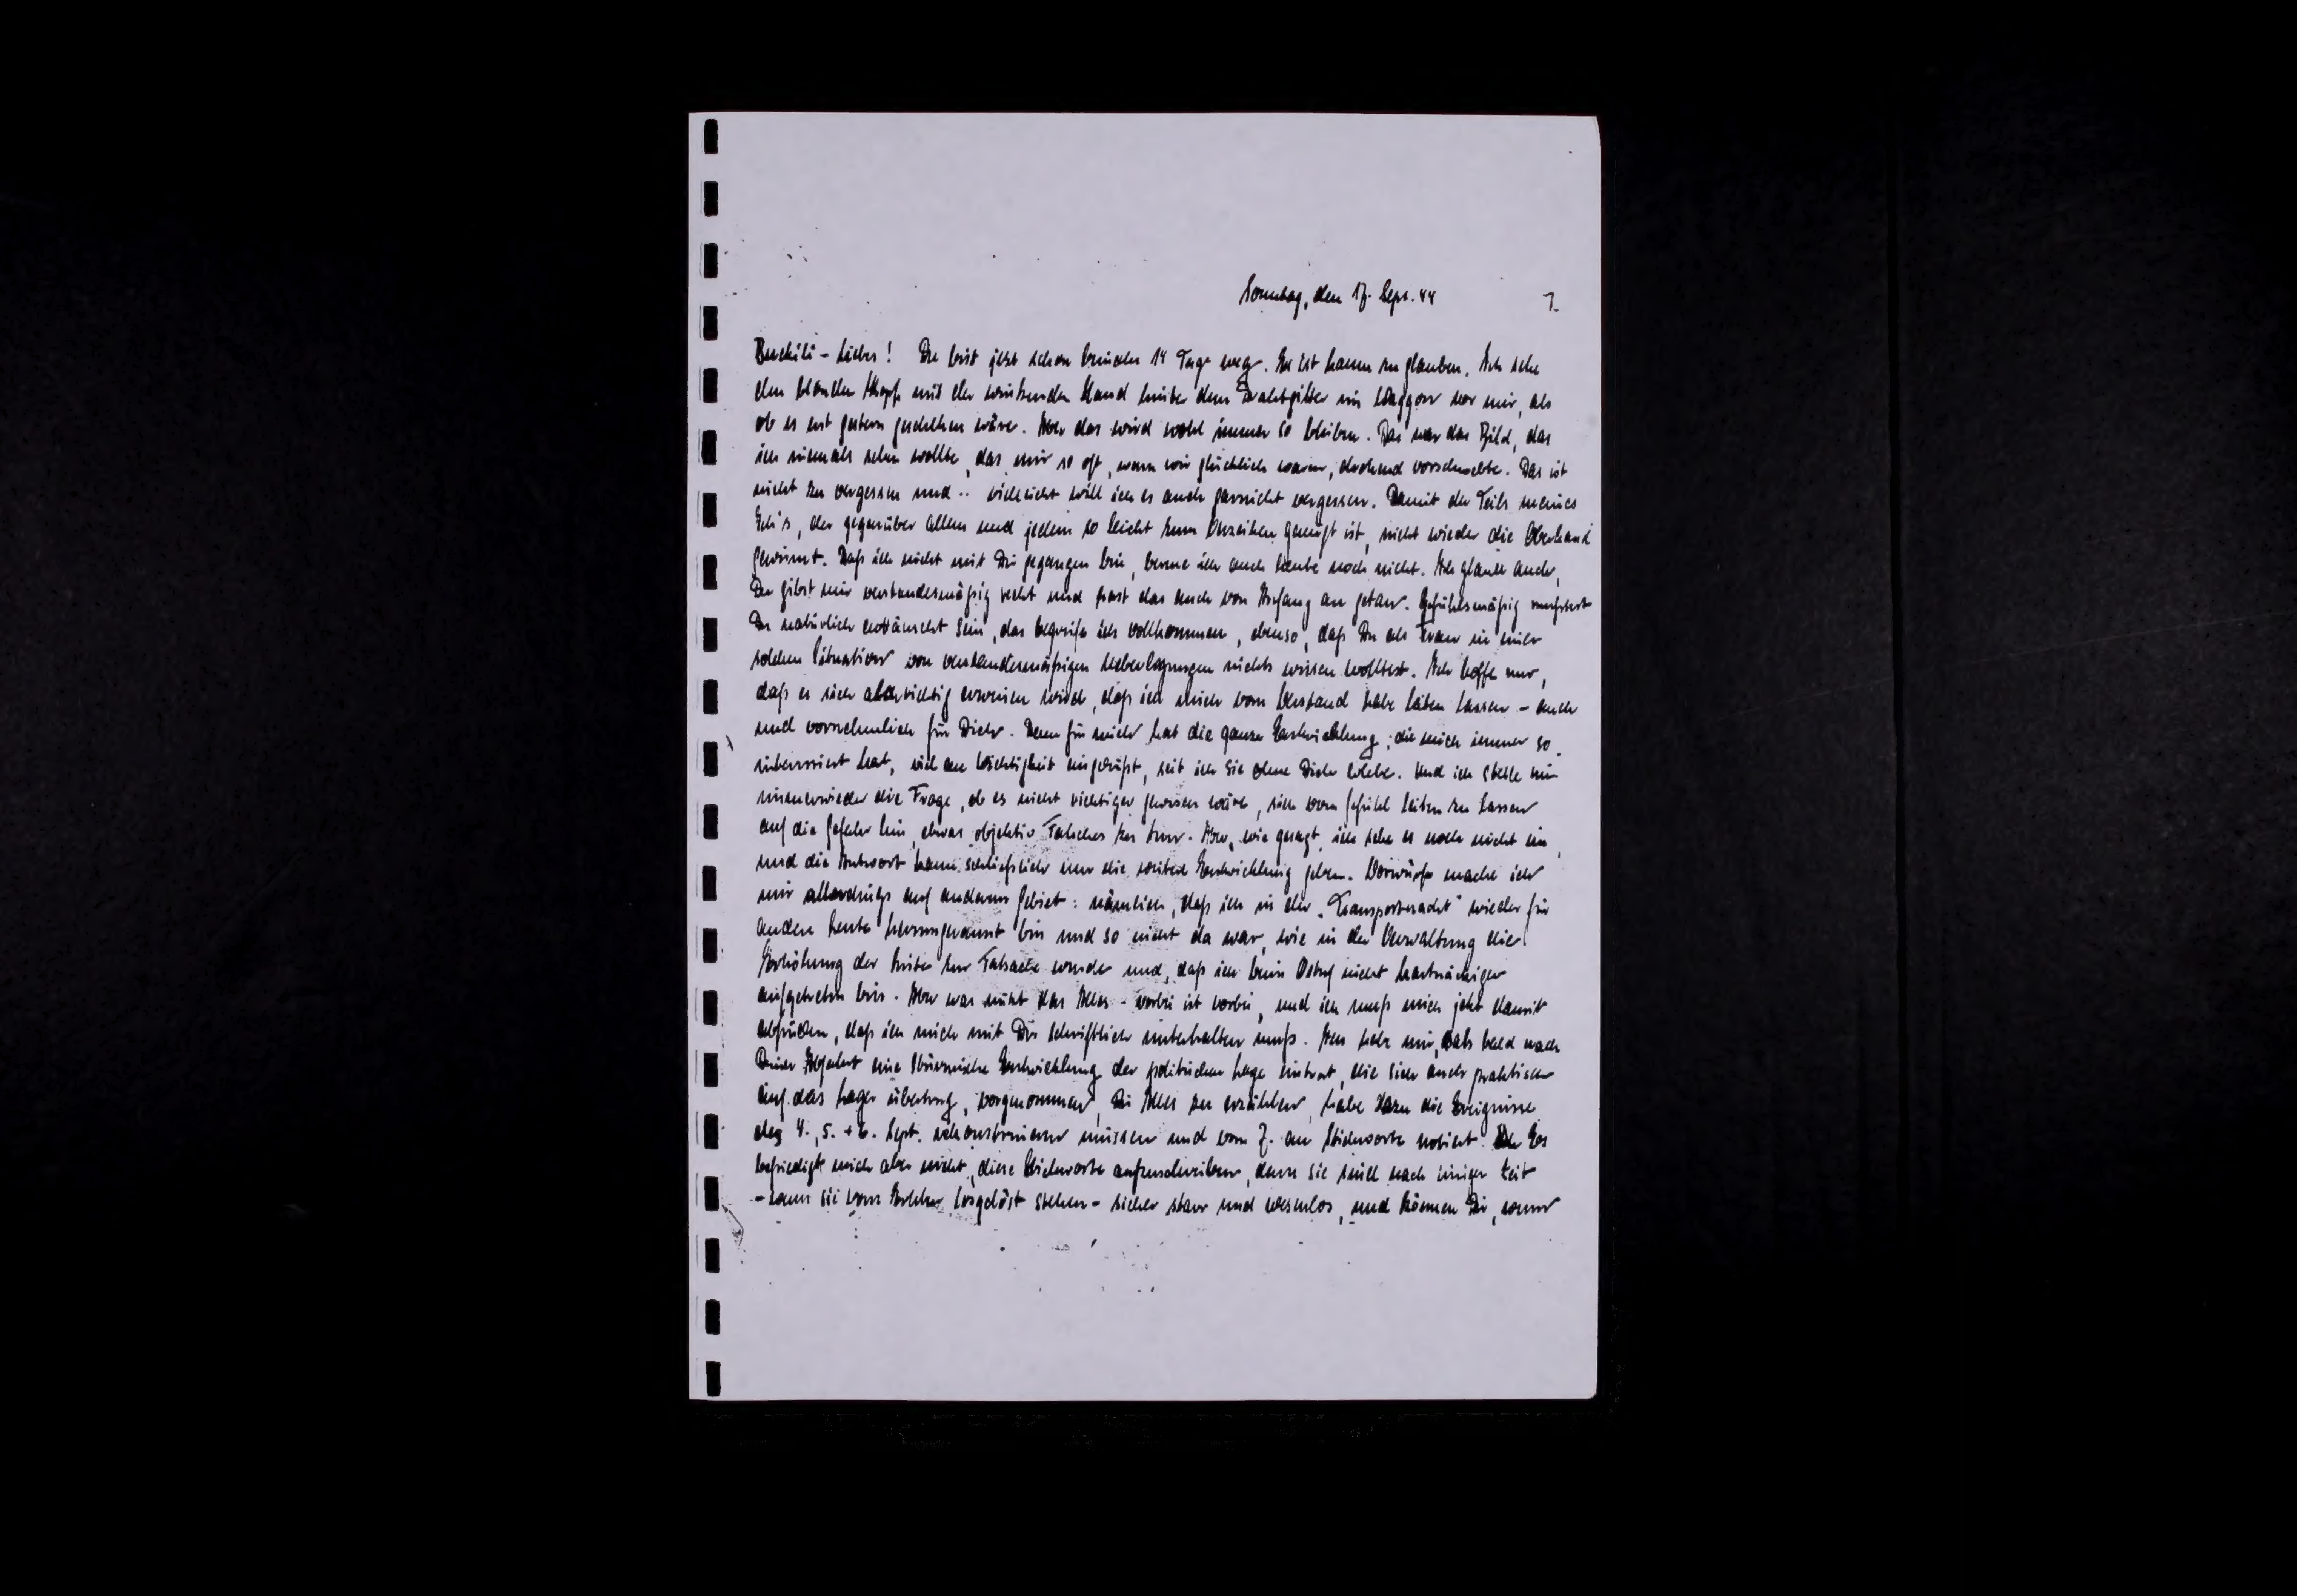 Sonntag, den 17. Sept. 44 1.
Liebes! Du bist jetzt schon beinahe 14 Tage weg. Es ist kaum zu glauben. Ich sehe
den blonden Kopf mit der winkenden Hand hinter dem Drahtgitter im Waggon vor mir, als
ob es erst gestern geschehen wäre. Aber das wird wohl immer so bleiben. Das war das Bild, das
ich niemals sehen wollte, das mir so oft, wenn wir glücklich waren, drohend vorschwebte. Das ist
nicht zu vergessen und .. vielleicht will ich es auch garnicht vergessen. Damit der Teils meines
Ich's, der gegenüber allem und jedem so leicht zum Verzeihen geneigt ist, nicht wieder die Oberhand
gewinnt. Daß ich nicht mit Dir gegangen bin, bereue ich auch heute noch nicht. Ich glaube auch,
Du gibst mir verstandesmäßig recht und hast das auch von Anfang an getan. Gefühlsmäßig mußtest
Du natürlich enttäuscht sein, das begreife ich vollkommen, ebenso, daß Du als Frau in einer
solchen Situation von verstandesmäßigen Ueberlegungen nichts wissen wolltest. Ich hoffe nur,
daß es sich als richtig erweisen wird, daß ich mich vom Verstand habe leiten lassen - auch
und vornehmlich für Dich. Denn für mich hat die ganze Entwicklung, die mich immer so
interessiert hat, viel an Wichtigkeit eingebüßt, seit ich sie ohne Dich erlebe. Und ich stelle mir
immerwieder die Frage, ob es nicht richtiger gewesen wäre, sich vom Gefühl leiten zu lassen
auf die Gefahr hin, etwas objektiv Falsches zu tun. Aber, wie gesagt, ich sehe es noch nicht ein,
und die Antwort kann schließlich nur die weitere Entwicklung geben. Vorwürfe mache ich
mir allerdings auf anderem Gebiet: nämlich, daß ich in der „Transportnacht" wieder für
andere Leute herumgerannt bin und so nicht da war, wie in der Verwaltung die
Erhöhung der zur Tatsache wurde und, daß ich beim nicht hartnäckiger
aufgetreten bin. Aber was nützt das Alles - vorbei ist vorbei, und ich muß mich jetzt damit
abfinden, daß ich mich mit Dir schriftlich unterhalten muß. Ich habe mir, als bald nach
Deiner Abfahrt eine stürmische Entwicklung der politischen Lage eintrat, die sich auch praktisch
auf das Lager übertrug, vorgenommen, Dir Alles zu erzählen, habe dazu die Ereignisse
des 4., 5. + 6. Sept. rekonstruieren müssen und vom 7. an Stichworte notiert. Es
befriedigt mich aber nicht, diese Stichworte aufzuschreiben, denn sie sind nach einiger Zeit
- wenn sie vom Erleben losgelöst stehen - sicher starr und wesenlos, und können Dir, wenn